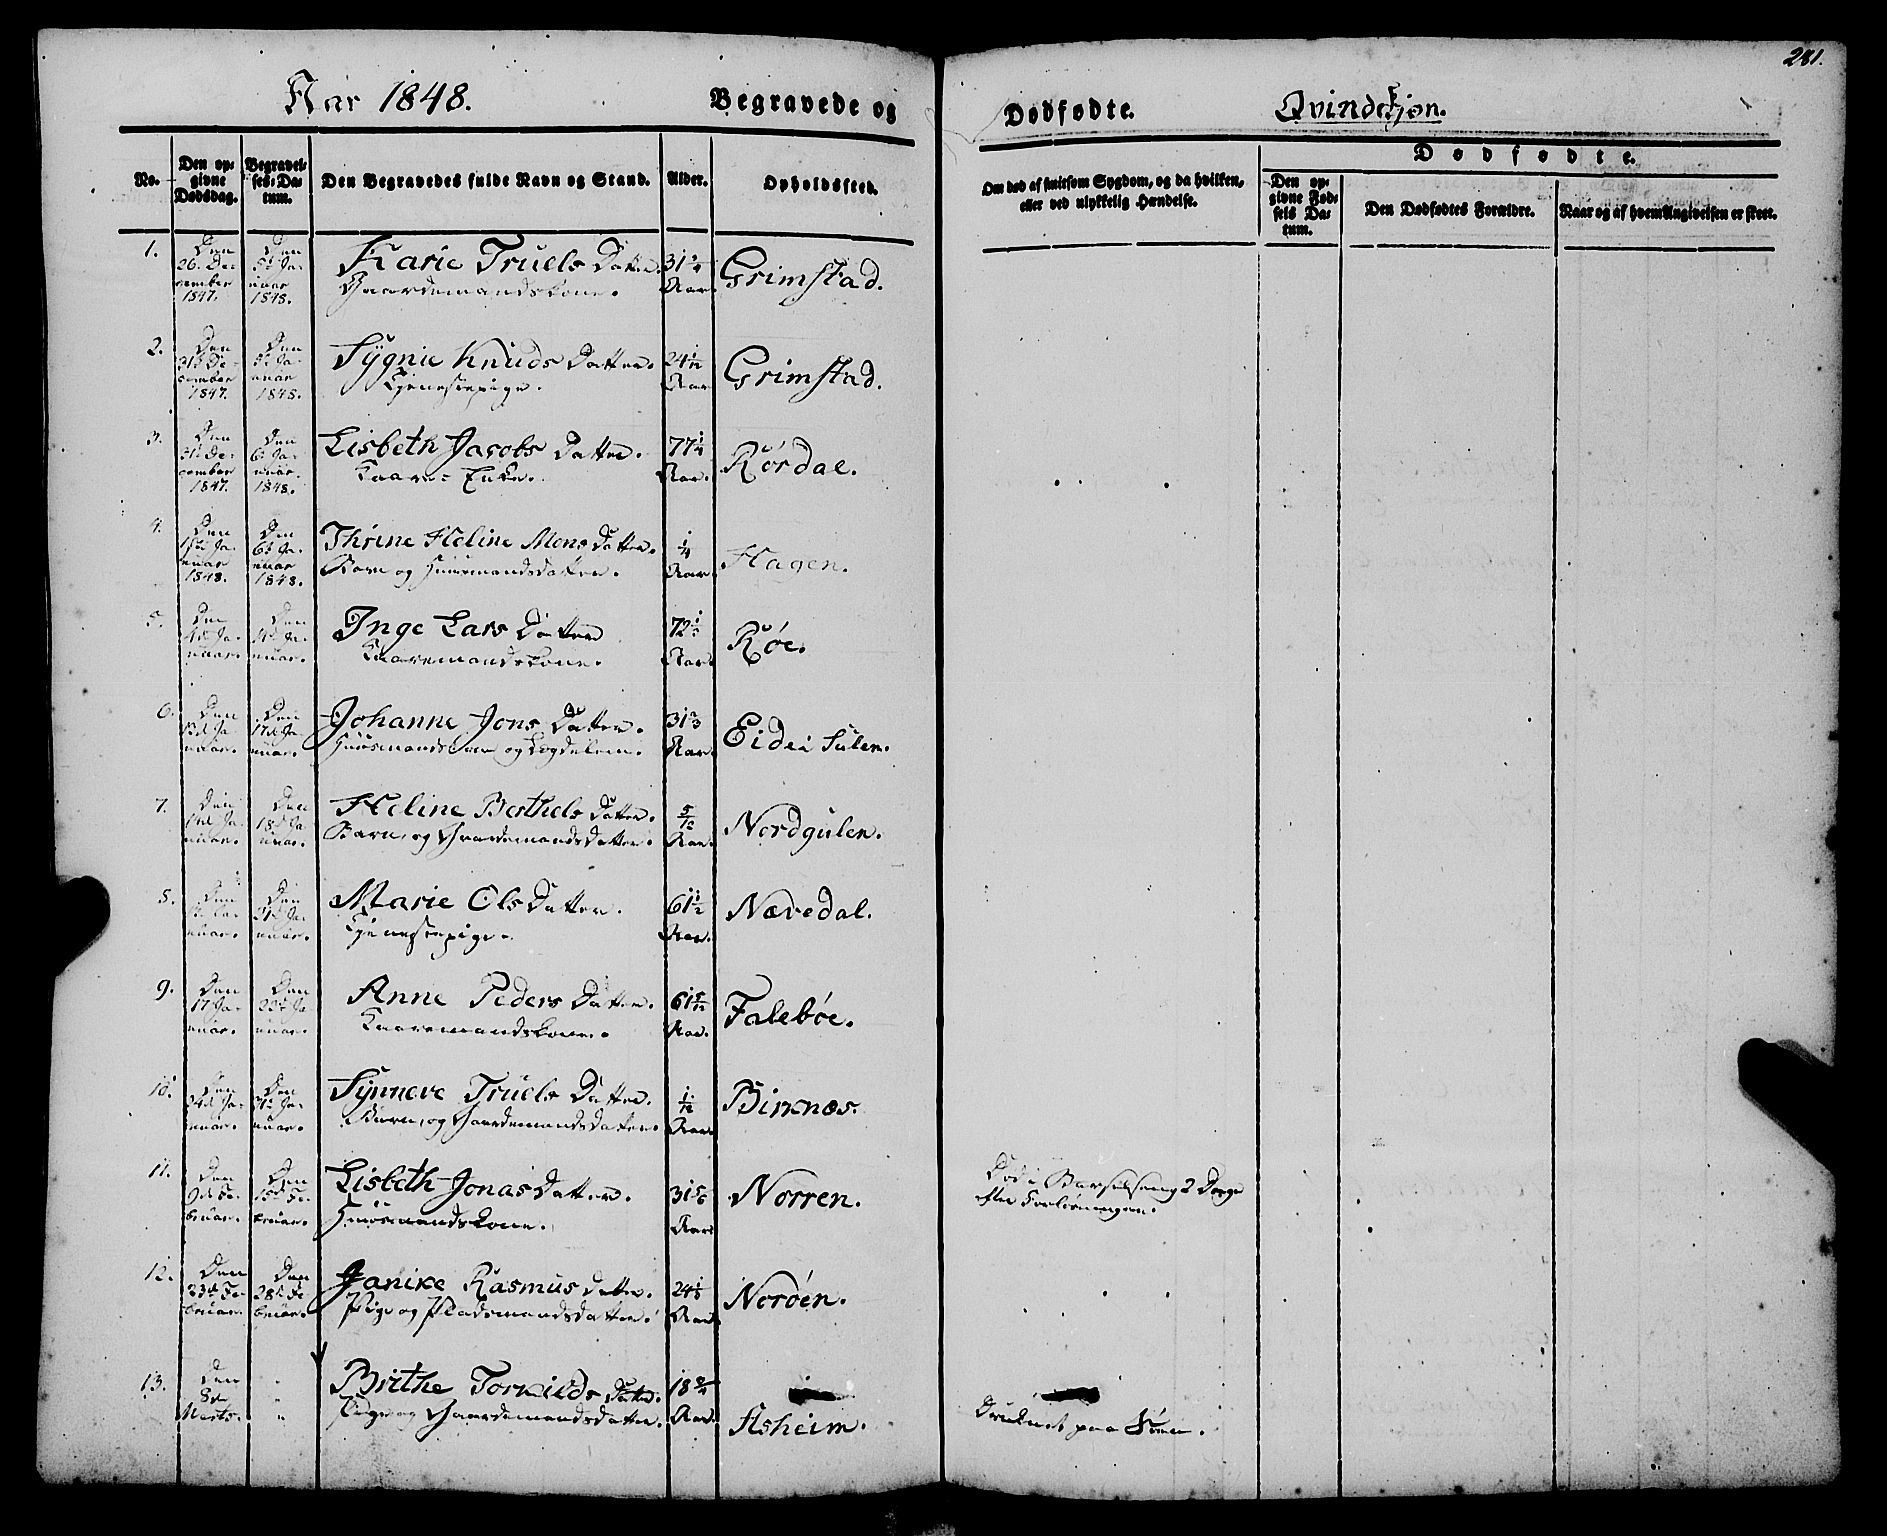 281.
Aar 1848. Begravede og Dødfødte. Qvindekjøn.
No.
Den opgivne Dødsdag.
Begravelses-Datum.
Den Begravedes fulde Navn og Stand.
Alder.
Opholdssted.
Om død af smitsom Sygdom, og da hvilken, eller ved ulykkelig Hændelse.
Dødfødte.
Den opgivne Fødsels Datum.
Den Dødfødtes Forældre.
Naar og af hvem Angivelsen er skeet.
1. Den 26. December 1847. Den 5te Januar 1848. Karie Truels Datter. 31 Aar. Grimstad.
Gaardemandskone.
2. Den 31te December 1847. Den 5te Januar 1848. Sygnie Knuds Datter. 24 1/12 Aar Grimstad.
Tjenestepige.
3. Den 31te December 1847. Den 6te Januar 1848. Lisbeth Jacobs Datter. 77 1/4 Aar. Rørdal.
Kaare-Enke.
4. Den 1ste Januar 1848. Den 6te Januar 1848. Thrine Heline Mons Datter. 1/4 Aar. Hagen.
Barn og Huusmandsdatter.
5. Den Januar. Den Januar. Inge Lars Datter 72 Aar. Røe.
Kaaremandskone.
6. Den 13de Januar. Den 17de Januar. Johanne Jons Datter. 31 2/3 Aar. Eide i Gulen.
Huusmandskone og Lægdelem.
7. Den Januar. Den 18de Januar. Heline Berthels Datter. 5/12 Aar. Nordgulen.
Barn, og Gaardemandsdatter.
8. Den Januar. Den Januar. Marie Ols Datter. 61 1/2 Aar. Nævedal.
Tjenestepige.
9. Den 17 Januar. Den Januar. Anne Peders Datter. 61 5/12 Aar. Falebøe.
Kaaremandskone.
10. Den 24de Januar. Den 31te Januar. Synneve Truels Datter. 1/12 Aar. Birknæs.
Barn, og Gaardemandsdatter.
11. Den 9de Februar. Den 15de Februar. Lisbeth Jonas Datter. 31 5/6 Aar Norren. Død i Barselseng 2 Dage
Huusmandskone. efter Forløsningen.
12. Den 23de Februar. Den 28de Februar. Janike Rasmus Datter. 24 Aar. Norøen.
Pige og Pladsmandsdatter.
13. Den 8de Marts. " Brithe Torkilds Datter. 18 3/4 Aar. Asheim. Druknet paa Søen.
Pige og Gaardemandsdatter.